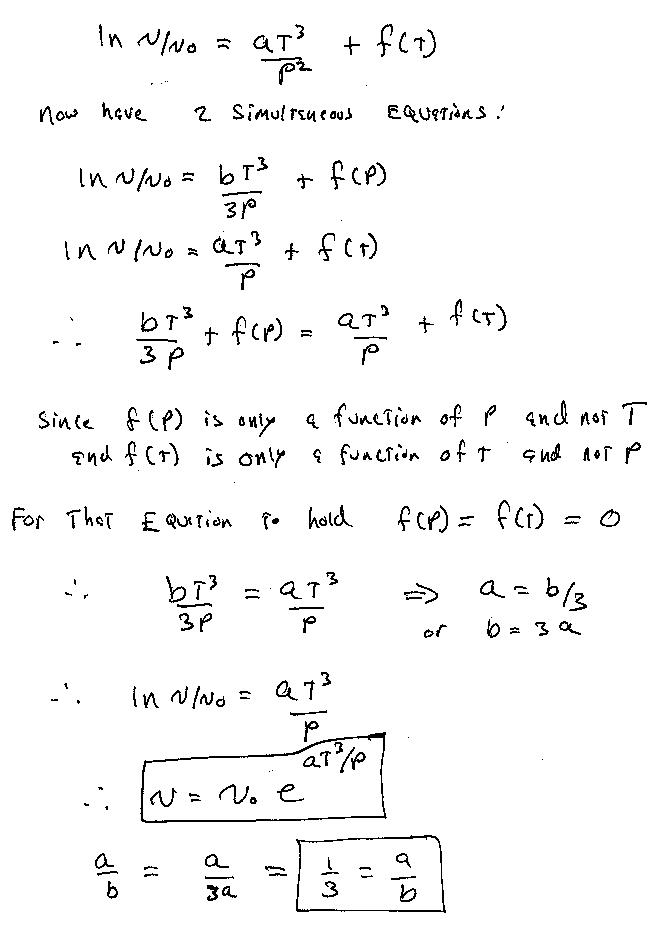 ln v/v₀ = aT³/P² + f(T)
Now have 2 Simulteneous Equations:
ln v/v₀ = bT³/3P + f(P)
ln v/v₀ = aT³/P + f(T)
∴ bT³/3P + f(P) = aT³/P + f(T)
Since f(P) is only a function of P and not T
and f(T) is only a function of T and not P
For That Equation to hold f(P) = f(T) = 0
∴ bT³/3P = aT³/P ⇒ a = b/3
or b = 3a
∴ ln v/v₀ = aT³/P
∴ v = v₀ e^(aT³/P)
a/b = a/3a = 1/3 = a/b